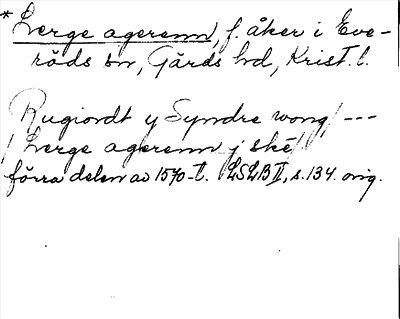 * Lerge agerenn, f. åker i Eve-
röds sn, Gärds hd, Krist. l.
Rugiordt y Syndre wong / ---
/ Lerge agerenn j ske /
förra delen av 1570-t. LSLB II, s. 134. orig.